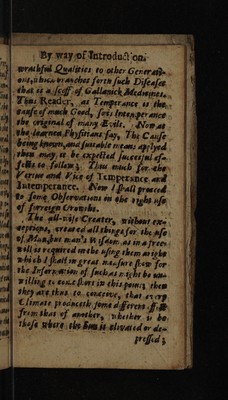 By way of Introduction.
wrathful Qualities to other Generati-
ons, which branches forth such Diseases
that is a scoff of Gallanick Medicines.
Thus Reader, as Temperance is the
cause of much Good, so is Intemperance
the original of many Evils. Now as
the learned Physitians say, The Cause
being known, and suitable means applyed
then may be expelled succesful ef-
fects to follow; Thus much for the
Vertue and Vice of Temperance and
Intemperance. Now I shall proceed
to some Observations in the right use
of forreign Growths.
The all-wise Creator, without ex-
ceptions, created all things for the use
of Man, but man's Wisdom as in a free
will is required in the using them aright
which I shall in great measure shew for
the Information of such as might be un-
willing to
they are thus to conceive, that every
Climate produceth some different effect
from that of another, whether it be
those where the Sun is elevated or de-
pressed;